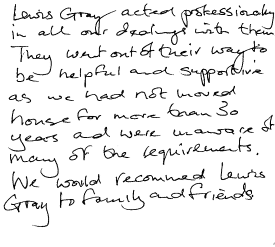 Lewis Gray acted professionaly
in all our dealings with them
They went out of their way to
be helpful and supportive
as we had not moved
house for more than 30
years and were unaware of
many of the requirements.
We would recommed Lewis
Gray to family and friends